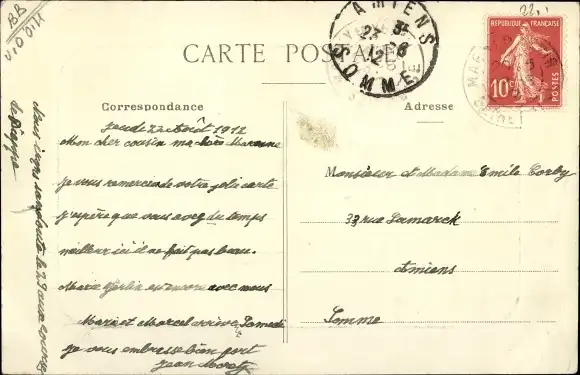 CARTE POSTALE
Correspondance
Adresse
Jeudi 22 Août 1912
Mon cher cousin ma chère Marraine
je vous remercie de votre jolie carte
j'espère que vous avez du temps
meilleur ici il ne fait pas beau.
Marie est encore avec nous
Marie et Marcel arrive Samedi
je vous embrasse bien fort
Jean
Nous irons sans doute le 29 aux courses
de Dieppe
Monsieur et Madame Emile Corby
33 rue Lamarck
Amiens
Somme
AMIENS
SOMME
REPUBLIQUE FRANÇAISE
10c
POSTES
BB